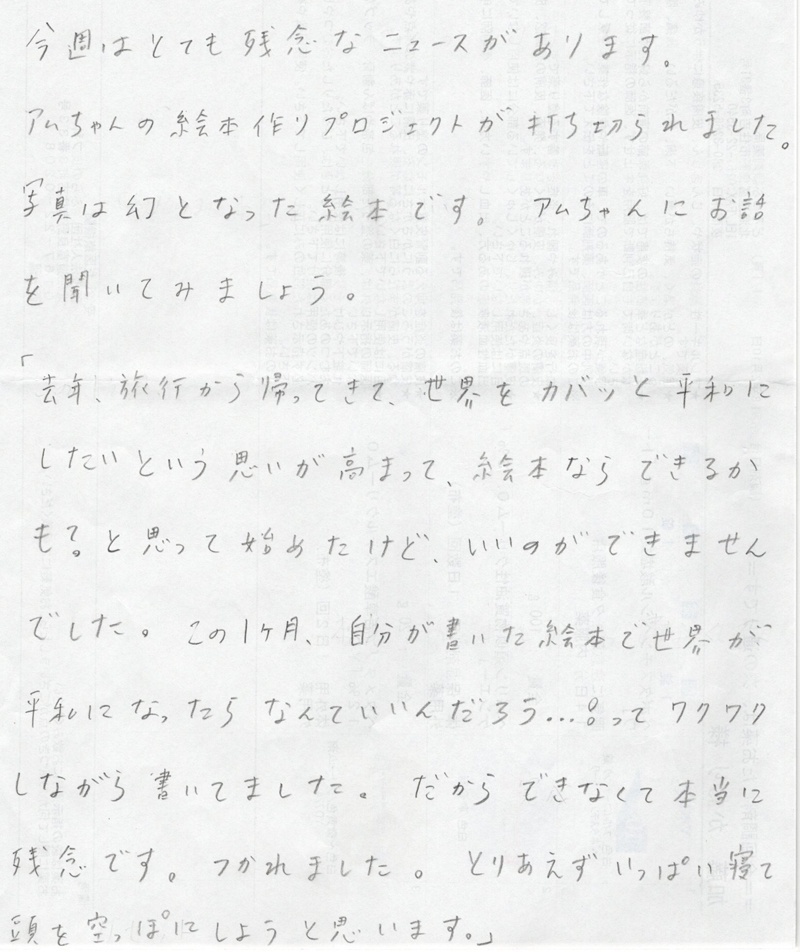 今週はとても残念なニュースがあります。
アムちゃんの絵本作りプロジェクトが打ち切られました。
写真は幻となった絵本です。 アムちゃんにお話
を聞いてみましょう。
「去年、旅行から帰ってきて、世界をカバッと平和に
したいという思いが高まって、絵本ならできるか
も?。と思って始めたけど、いいのができません
でした。 この1ヶ月、自分が書いた絵本で世界が
平和になったらなんていいんだろう...!。ってワクワク
しながら書いてました。 だからできなくて本当に
残念です。つかれました。 とりあえずいっぱい寝て
頭を空っぽにしようと思います。」